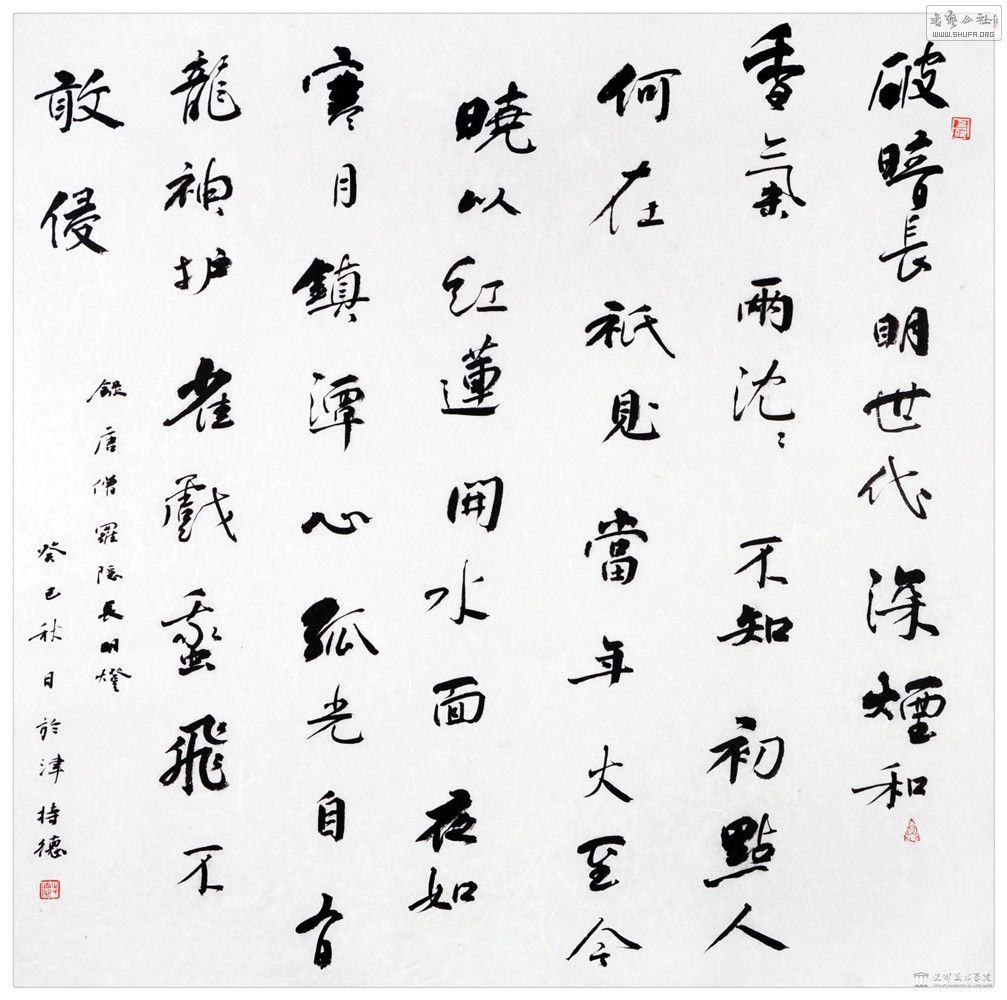 破暗長明世代深煙和
香氣兩沈々不知初點人
何在祇見當年火至今
曉以紅蓮開水面夜如
寒月鎮潭心孤光自有
龍神护雀戲蛾飛不
敢侵
録唐僧羅隱長明燈
癸巳秋日於津持德
書藝公社
WWW.SHUFA.ORG